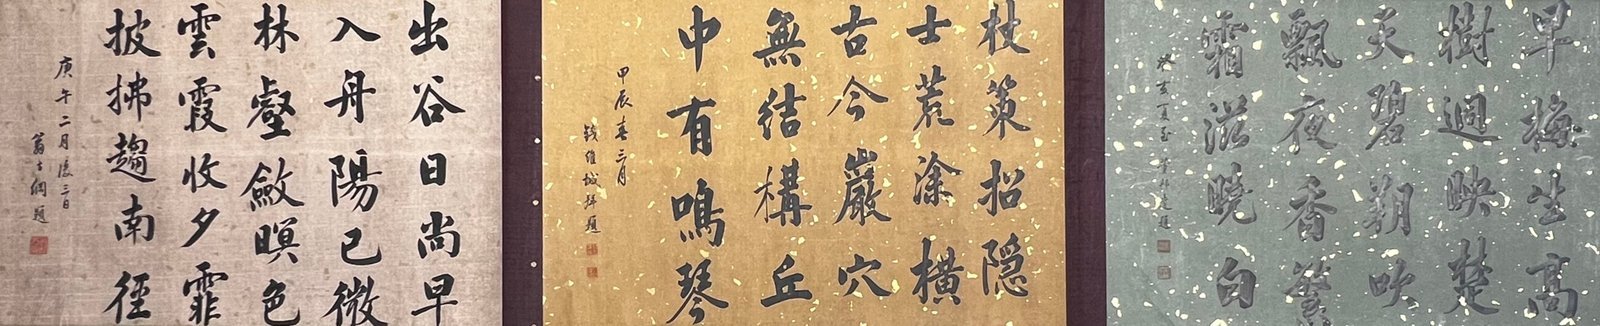 早梅生高
樹逈映楚
天碧朔吹
飄夜香繁
霜滋曉白
癸亥夏至
杖策招隱
士荒涂橫
古今巖穴
無結構丘
中有鳴琴
甲辰春三月
錢維城拜題
出谷日尚早
入舟陽已微
林壑斂暝色
雲霞收夕霏
披拂趨南徑
庚午二月後三日
翁方綱題